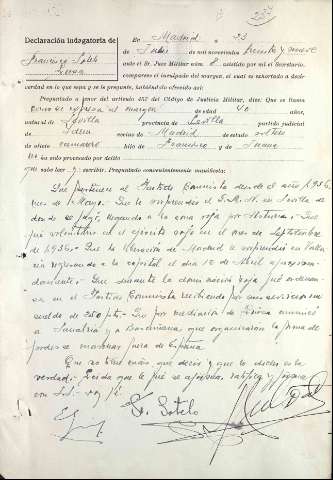 Declaración indagatoria de
Francisco Sotelo
En Madrid a 23
de Julio de mil novecientos treinta y nueve
ante el Sr. Juez Militar núm. 8 asistido por mi el Secretario,
comparece el inculpado del margen, al cual se exhortado a decir
verdad en lo que sepa y se le pregunte, habiéndolo ofrecido así:
Preguntado a tenor del artículo 457 del Código de Justicia Militar, dice: Que se llama
como se expresa al margen de edad 40 años,
natural de Sevilla provincia de Sevilla partido judicial
de Idem vecino de Madrid de estado soltero
de oficio camarero hijo de Francisco y de Juana
no ha sido procesado por delito
que sabe leer y escribir. Preguntado convenientemente manifiesta:
Que pertenece al Partido Comunista desde el año 1936
mes de Mayo. Que le sorprendió el G.M.N. en Sevilla de
donde se fugó, llegando a la zona roja por Que
fué voluntario al ejército rojo en el mes de Septiembre
de 1936. Que la liberación de Madrid le sorprendió en
regresando a la capital el día 10 de Abril aproxima-
damente. Que durante la dominación roja fué ordenan-
za en el Partido Comunista recibiendo por sus servicios un
sueldo de 350 pts. Que por mediación de conoció
a y a que organizaron la forma de
poderse marchar fuera de España.
Que no tiene más que decir y que lo dicho es la
verdad. Leída que le fué se afirma, ratifica y firma
con S.S. doy fé.
F. Sotelo